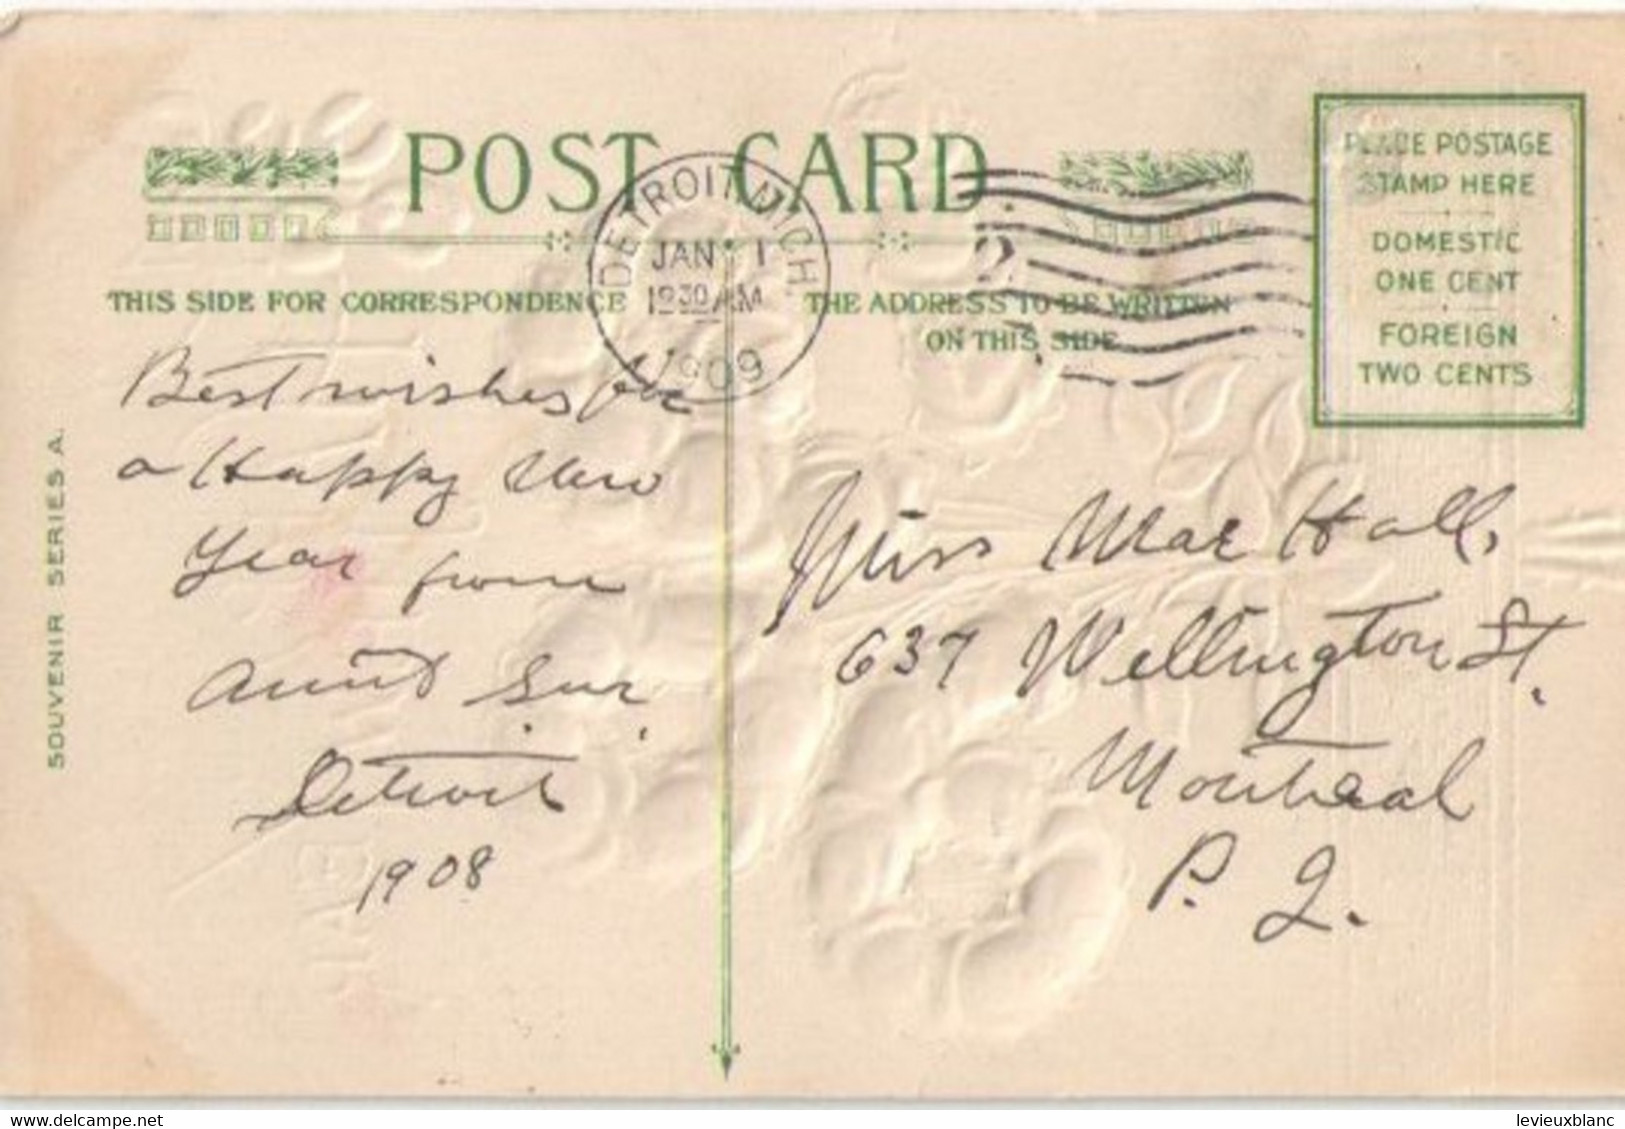 POST CARD
THIS SIDE FOR CORRESPONDENCE
THE ADDRESS TO BE WRITTEN
ON THIS SIDE
PLACE POSTAGE
STAMP HERE
DOMESTIC
ONE CENT
FOREIGN
TWO CENTS
DETROIT, MICH.
JAN 1
1230 AM
1909
2
SOUVENIR SERIES A.
Best wishes for
a Happy New
Year from
Aunt Sur.
Detroit
1908
Miss Mae Hall,
637 Wellington St.
Montreal
P. Q.
levieuxblanc
delcampe.net